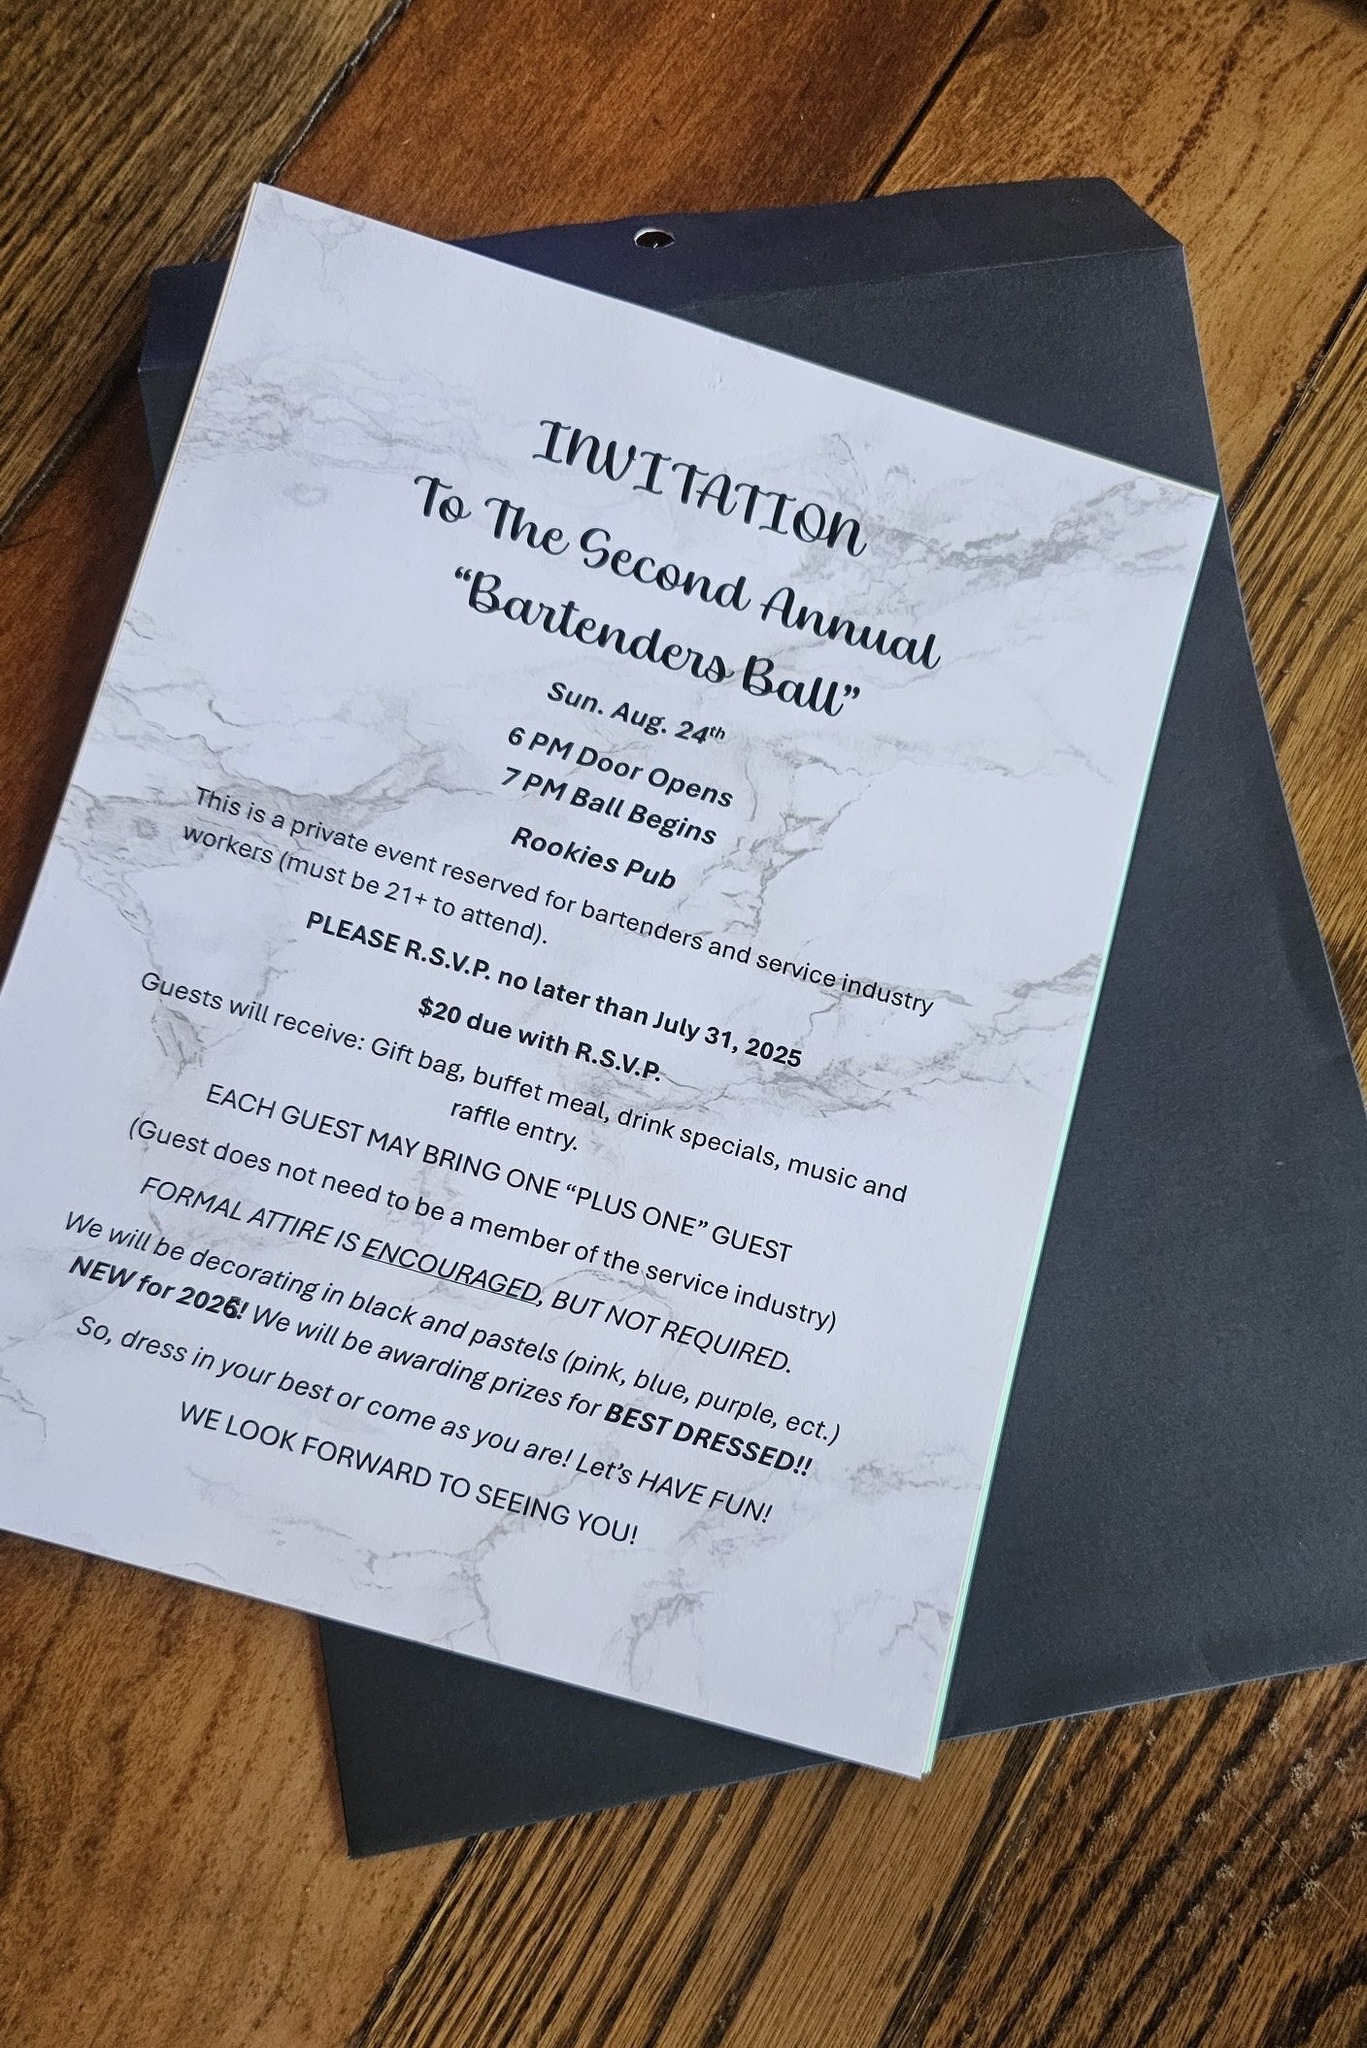 INVITATION
To The Second Annual
“Bartenders Ball”
Sun. Aug. 24th
6 PM Door Opens
7 PM Ball Begins
Rookies Pub
This is a private event reserved for bartenders and service industry
workers (must be 21+ to attend).
PLEASE R.S.V.P. no later than July 31, 2025
$20 due with R.S.V.P.
Guests will receive: Gift bag, buffet meal, drink specials, music and
raffle entry.
EACH GUEST MAY BRING ONE “PLUS ONE” GUEST
(Guest does not need to be a member of the service industry)
FORMAL ATTIRE IS ENCOURAGED, BUT NOT REQUIRED.
We will be decorating in black and pastels (pink, blue, purple, ect.)
NEW for 2026! We will be awarding prizes for BEST DRESSED!!
So, dress in your best or come as you are! Let’s HAVE FUN!
WE LOOK FORWARD TO SEEING YOU!